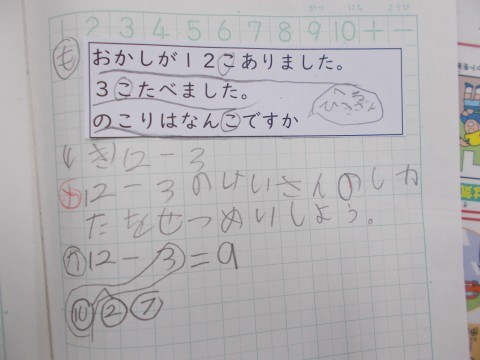 1 2 3 4 5 6 7 8 9 10 + -
も
おかしが12こありました。
3こたべました。
のこりはなんこですか
へる
ひきざん
しき12-3
め12-3のけいさんのしか
たをせつめいしよう。
か12-3=9
10 2 7